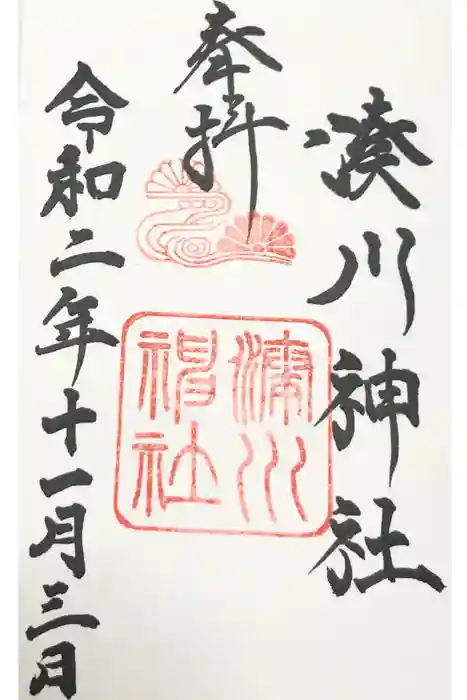 湊川神社
奉拝
湊川
神社
令和二年十一月三日